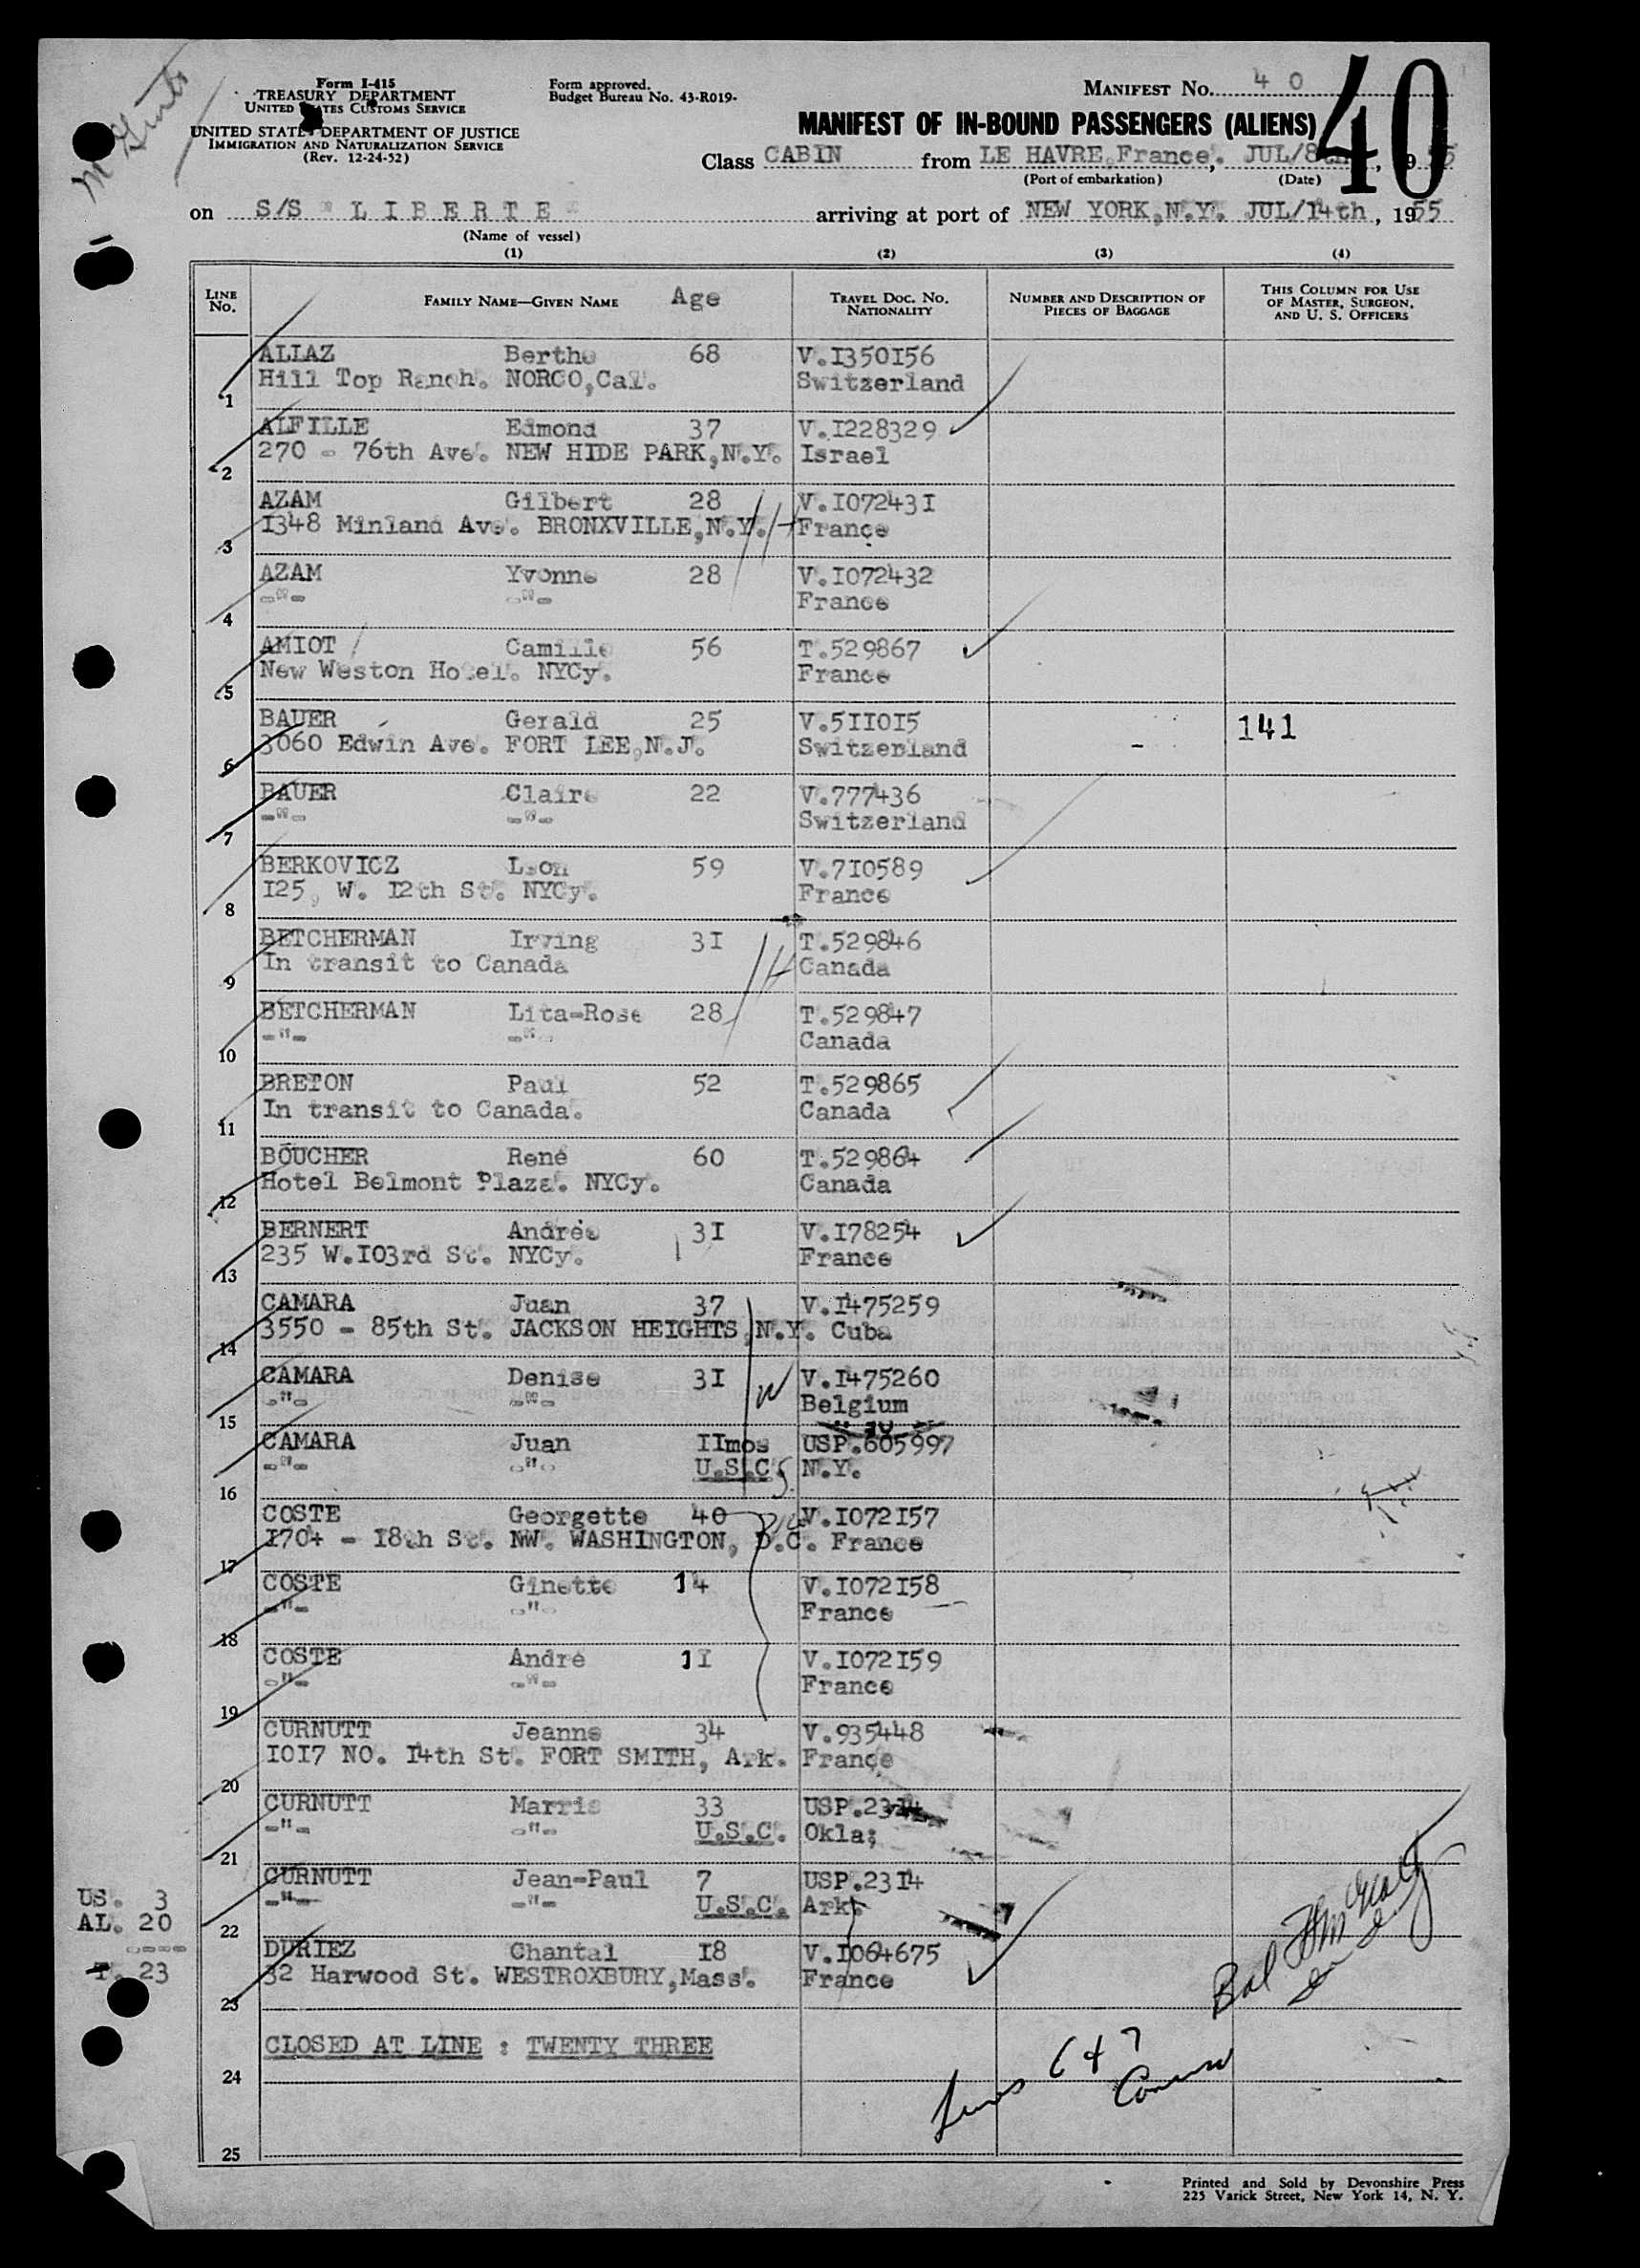 Form I-415
TREASURY DEPARTMENT
UNITED STATES CUSTOMS SERVICE
UNITED STATES DEPARTMENT OF JUSTICE
IMMIGRATION AND NATURALIZATION SERVICE
(Rev. 12-24-52)
Form approved.
Budget Bureau No. 43-R019-
MANIFEST No. 40
40
MANIFEST OF IN-BOUND PASSENGERS (ALIENS)
Class CABIN from LE HAVRE, France, JUL/8th, 1955
(Port of embarkation) (Date)
on S/S "LIBERTE" arriving at port of NEW YORK, N.Y. JUL/14th, 1955
(Name of vessel)
(1) (2) (3) (4)
LINE No. FAMILY NAME—GIVEN NAME Age TRAVEL DOC. NO. NATIONALITY NUMBER AND DESCRIPTION OF PIECES OF BAGGAGE THIS COLUMN FOR USE OF MASTER, SURGEON, AND U. S. OFFICERS
ALLAZ Berthe 68 V.I350I56
1 Hill Top Ranch. NORCO,Cal. Switzerland
ALFILLE Edmond 37 V.I228329
2 270 - 76th Ave. NEW HIDE PARK,N.Y. Israel
AZAM Gilbert 28 V.I07243I
3 I348 Minland Ave. BRONXVILLE,N.Y. France
AZAM Yvonne 28 V.I072432
4 -"- -"- France
AMIOT Camille 56 T.529867
5 New Weston Hotel. NYCy. France
BAUER Gerald 25 V.5II0I5 141
6 3060 Edwin Ave. FORT LEE,N.J. Switzerland
BAUER Claire 22 V.777436
7 -"- -"- Switzerland
BERKOVICZ Leon 59 V.7I0589
8 I25, W. I2th St. NYCy. France
BETCHERMAN Irving 3I T.529846
9 In transit to Canada Canada
BETCHERMAN Lita-Rose 28 T.529847
10 -"- -"- Canada
BRETON Paul 52 T.529865
11 In transit to Canada. Canada
BOUCHER René 60 T.529864
12 Hotel Belmont Plaza. NYCy. Canada
BERNERT Andrée 3I V.I78254
13 235 W.I03rd St. NYCy. France
CAMARA Juan 37 V.I475259
14 3550 - 85th St. JACKSON HEIGHTS,N.Y. Cuba
CAMARA Denise 3I V.I475260
15 -"- -"- Belgium
CAMARA Juan IImos USP.605997
16 -"- -"- U.S.C. N.Y.
COSTE Georgette 40 V.I072I57
17 I704 - I8th St. NW. WASHINGTON, D.C. France
COSTE Ginette 14 V.I072I58
18 -"- -"- France
COSTE André 1I V.I072I59
19 -"- -"- France
CURNUTT Jeanne 34 V.935448
20 I0I7 NO. I4th St. FORT SMITH, Ark. France
CURNUTT Marris 33 USP.23I4
21 -"- -"- U.S.C. Okla;
CURNUTT Jean-Paul 7 USP.23I4
22 -"- -"- U.S.C. Ark.
DURIEZ Chantal I8 V.I064675
23 32 Harwood St. WESTROXBURY,Mass. France
US. 3
AL. 20
----
T. 23
24 CLOSED AT LINE : TWENTY THREE
Lines 6 + 7
25
Printed and Sold by Devonshire Press
225 Varick Street, New York 14, N. Y.